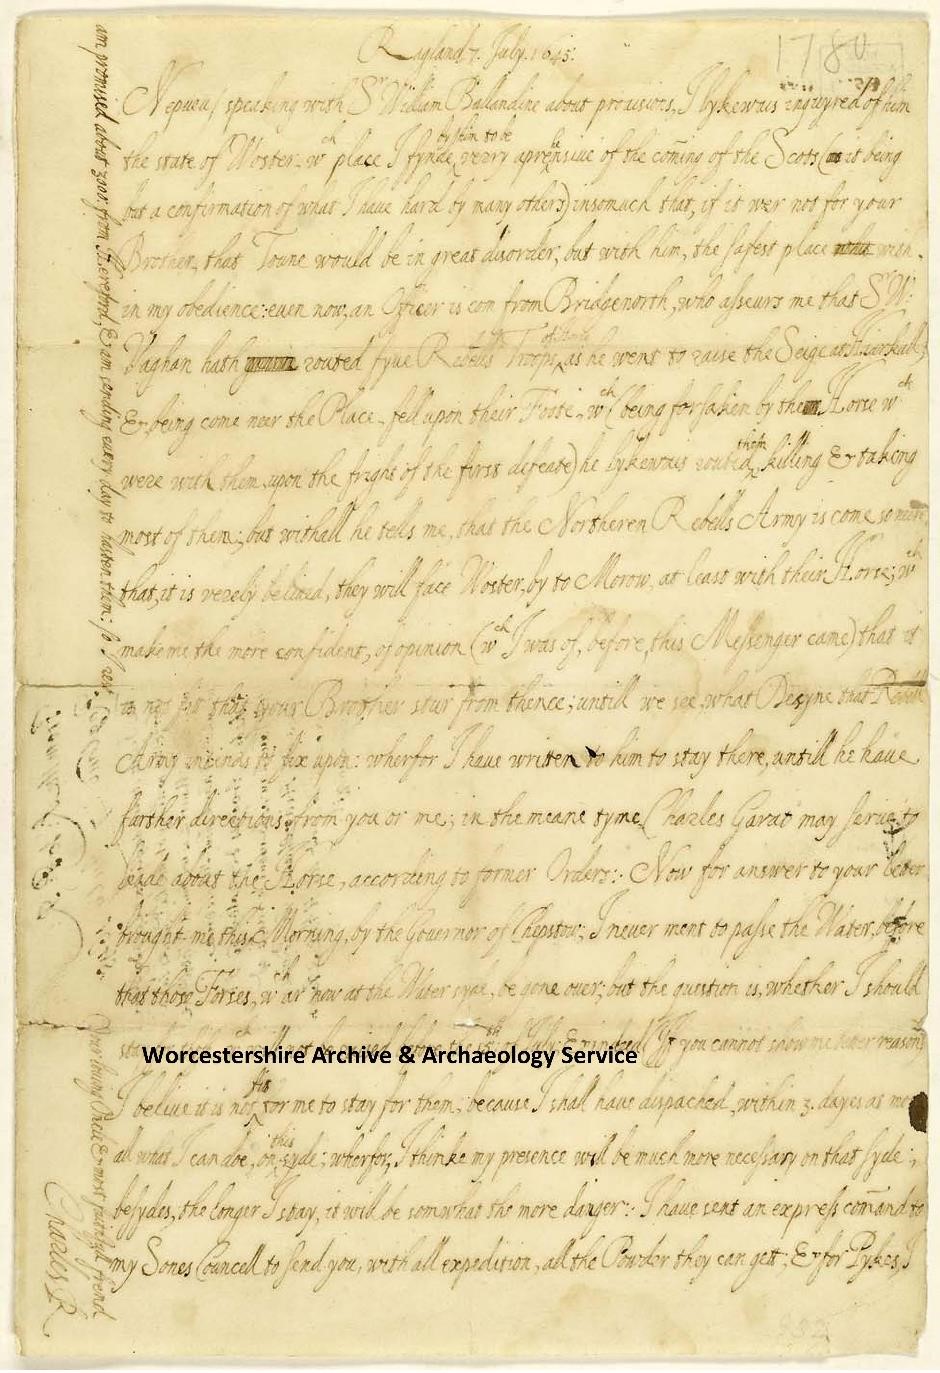 Ragland 7. July. 1645:
1780
Nepueu / speaking with Sr William Ballandine about provisions, I lykewais inquyred of him
the state of Woster, wch place I fynde by him to be verry aprehensive of the coming of the Scots (it being
but a confirmation of what I have hard by many others) insomuch that, if it wer not for your
Brother, that Toune would be in great disorder, but with him, the safest place within
in my obedience: even now, an Officer is com from Bridgenorth, who asseurs me that Sr W:
Vaghan hath routed fyve Rebells Troops of Horse as he went to raise the Seige at
& being come neer the Place, fell upon their Foote, wch (being forsaken by the Horse wch
were with them upon the fright of the first defeate) he lykewais routed them, killing & taking
most of them; but withall he tells me, that the Northeren Rebells Army is come so neere,
that, it is verely belived, they will face Woster, by to Morow, at least with their Horse; wch
makes me the more confident, of opinion (wch I was of, before this Messenger came) that it
is not fit that your Brother stur from thence; untill we see, what Desyne that Rebell
Army intends to fix upon: wherfor I have written to him to stay there, untill he have
farther directions from you or me; in the meane tyme, Charles Garat may serve to
leade about the Horse, according to former Orders: Now for answer to your letter
brought me this Morning, by the Governor of Chepstow; I never ment to passe the Water, before
that those Forses, wch ar now at the Water syde, be gone over; but the question is, whether I should
stay for those wch will not be raised before the of July: & indeed, if you cannot show me better reasons
I belive it is not fit for me to stay for them; because I shall have dispached, within 3. dayes as
all what I can doe, on this syde; wherfor, I thinke my presence will be much more necessary on that syde;
besydes, the longer I stay, it will be somwhat the more danger: I have sent an express comand to
my Sones Councell to send you, with all expedition, all the Powder they can gett; & for Pykes, I
am promised about 2000. from Hereford, & am sending every day to hasten them: so I rest
Your loving Oncle & most faithfull frend
Charles R
Worcestershire Archive & Archaeology Service